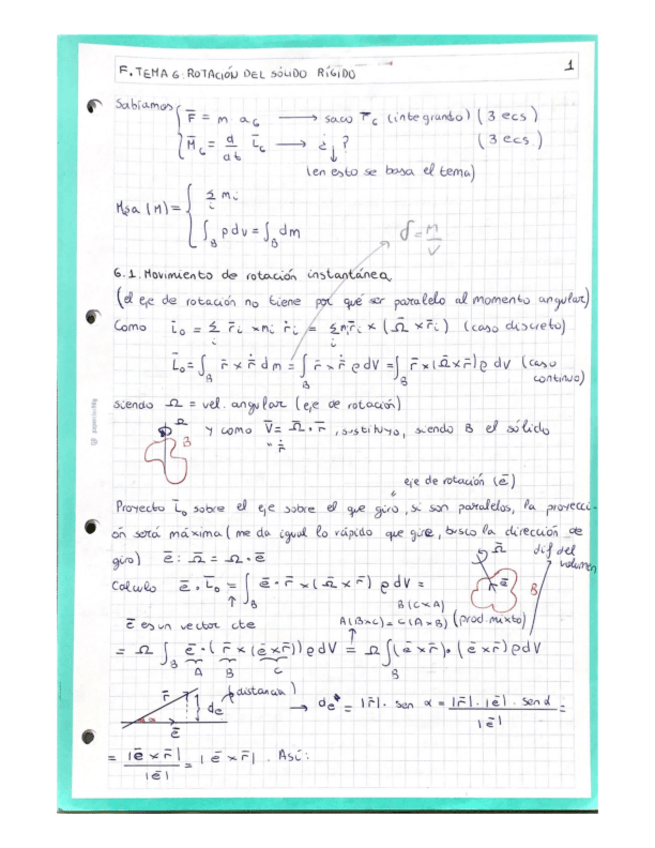 F. TEMA 6: ROTACIÓN DEL SÓLIDO RÍGIDO
1
Sabíamos { F̄ = m a_G → saco r̄_G (integrando) (3 ecs)
M̄_G = d/dt L̄_G → ¿ ↓ ? (3 ecs.)
(en esto se basa el tema)
Masa (M) = { Σ_i m_i
∫_B ρ dv = ∫_B dm
ρ = M/V
6.1. Movimiento de rotación instantánea
(el eje de rotación no tiene por qué ser paralelo al momento angular)
Como L̄_0 = Σ_i r̄_i × m_i ṙ̄_i = Σ_i m_i r̄_i × (Ω̄ × r̄_i) (caso discreto)
L̄_0 = ∫_B r̄ × ṙ̄ dm = ∫_B r̄ × ṙ̄ ρ dV = ∫_B r̄ × (Ω̄ × r̄) ρ dV (caso continuo)
siendo Ω = vel. angular (eje de rotación)
Ω B
y como V̄ = Ω̄ · r̄, sustituyo, siendo B el sólido
" ṙ̄
eje de rotación (ē)
"
Proyecto L̄_0 sobre el eje sobre el que giro, si son paralelos, la proyecci-
ón será máxima (me da igual lo rápido que gire, busco la dirección de
giro) ē : Ω̄ = Ω · ē
Ω̄ ē B
dif del volumen
Calculo ē · L̄_0 = ∫_B ē · r̄ × (Ω̄ × r̄) ρ dV =
↑
B(C×A)
ē es un vector cte
A(B×C) = C(A×B) (prod. mixto)
= Ω ∫_B ē · (r̄ × (ē × r̄)) ρ dV = Ω ∫_B (ē × r̄) · (ē × r̄) ρ dV
A B C
r̄ α ē d_e (distancia)
→ d_e = |r̄| · sen α = |r̄| · |ē| · sen α / |ē| =
= |ē × r̄| / |ē| = |ē × r̄| . Así: